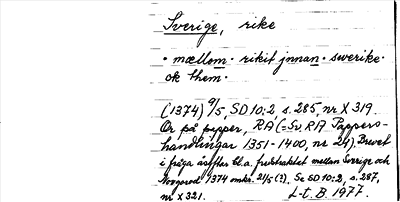 Sverige, rike
· mællom · rikit jnnan · swerike ·
ok them ·
(1374) 9/5, SD 10:2, s. 285, nr X 319.
Or på papper, RA (= Sv. RA Pappers-
handlingar 1351-1400, nr 24). Brevet
i fråga åsyftar bl.a. fredstraktat mellan Sverige och
Novgorod 1374 omkr. 21/5 (?). Se SD 10:2, s. 287,
nr X 321. L-t. B. 1977.